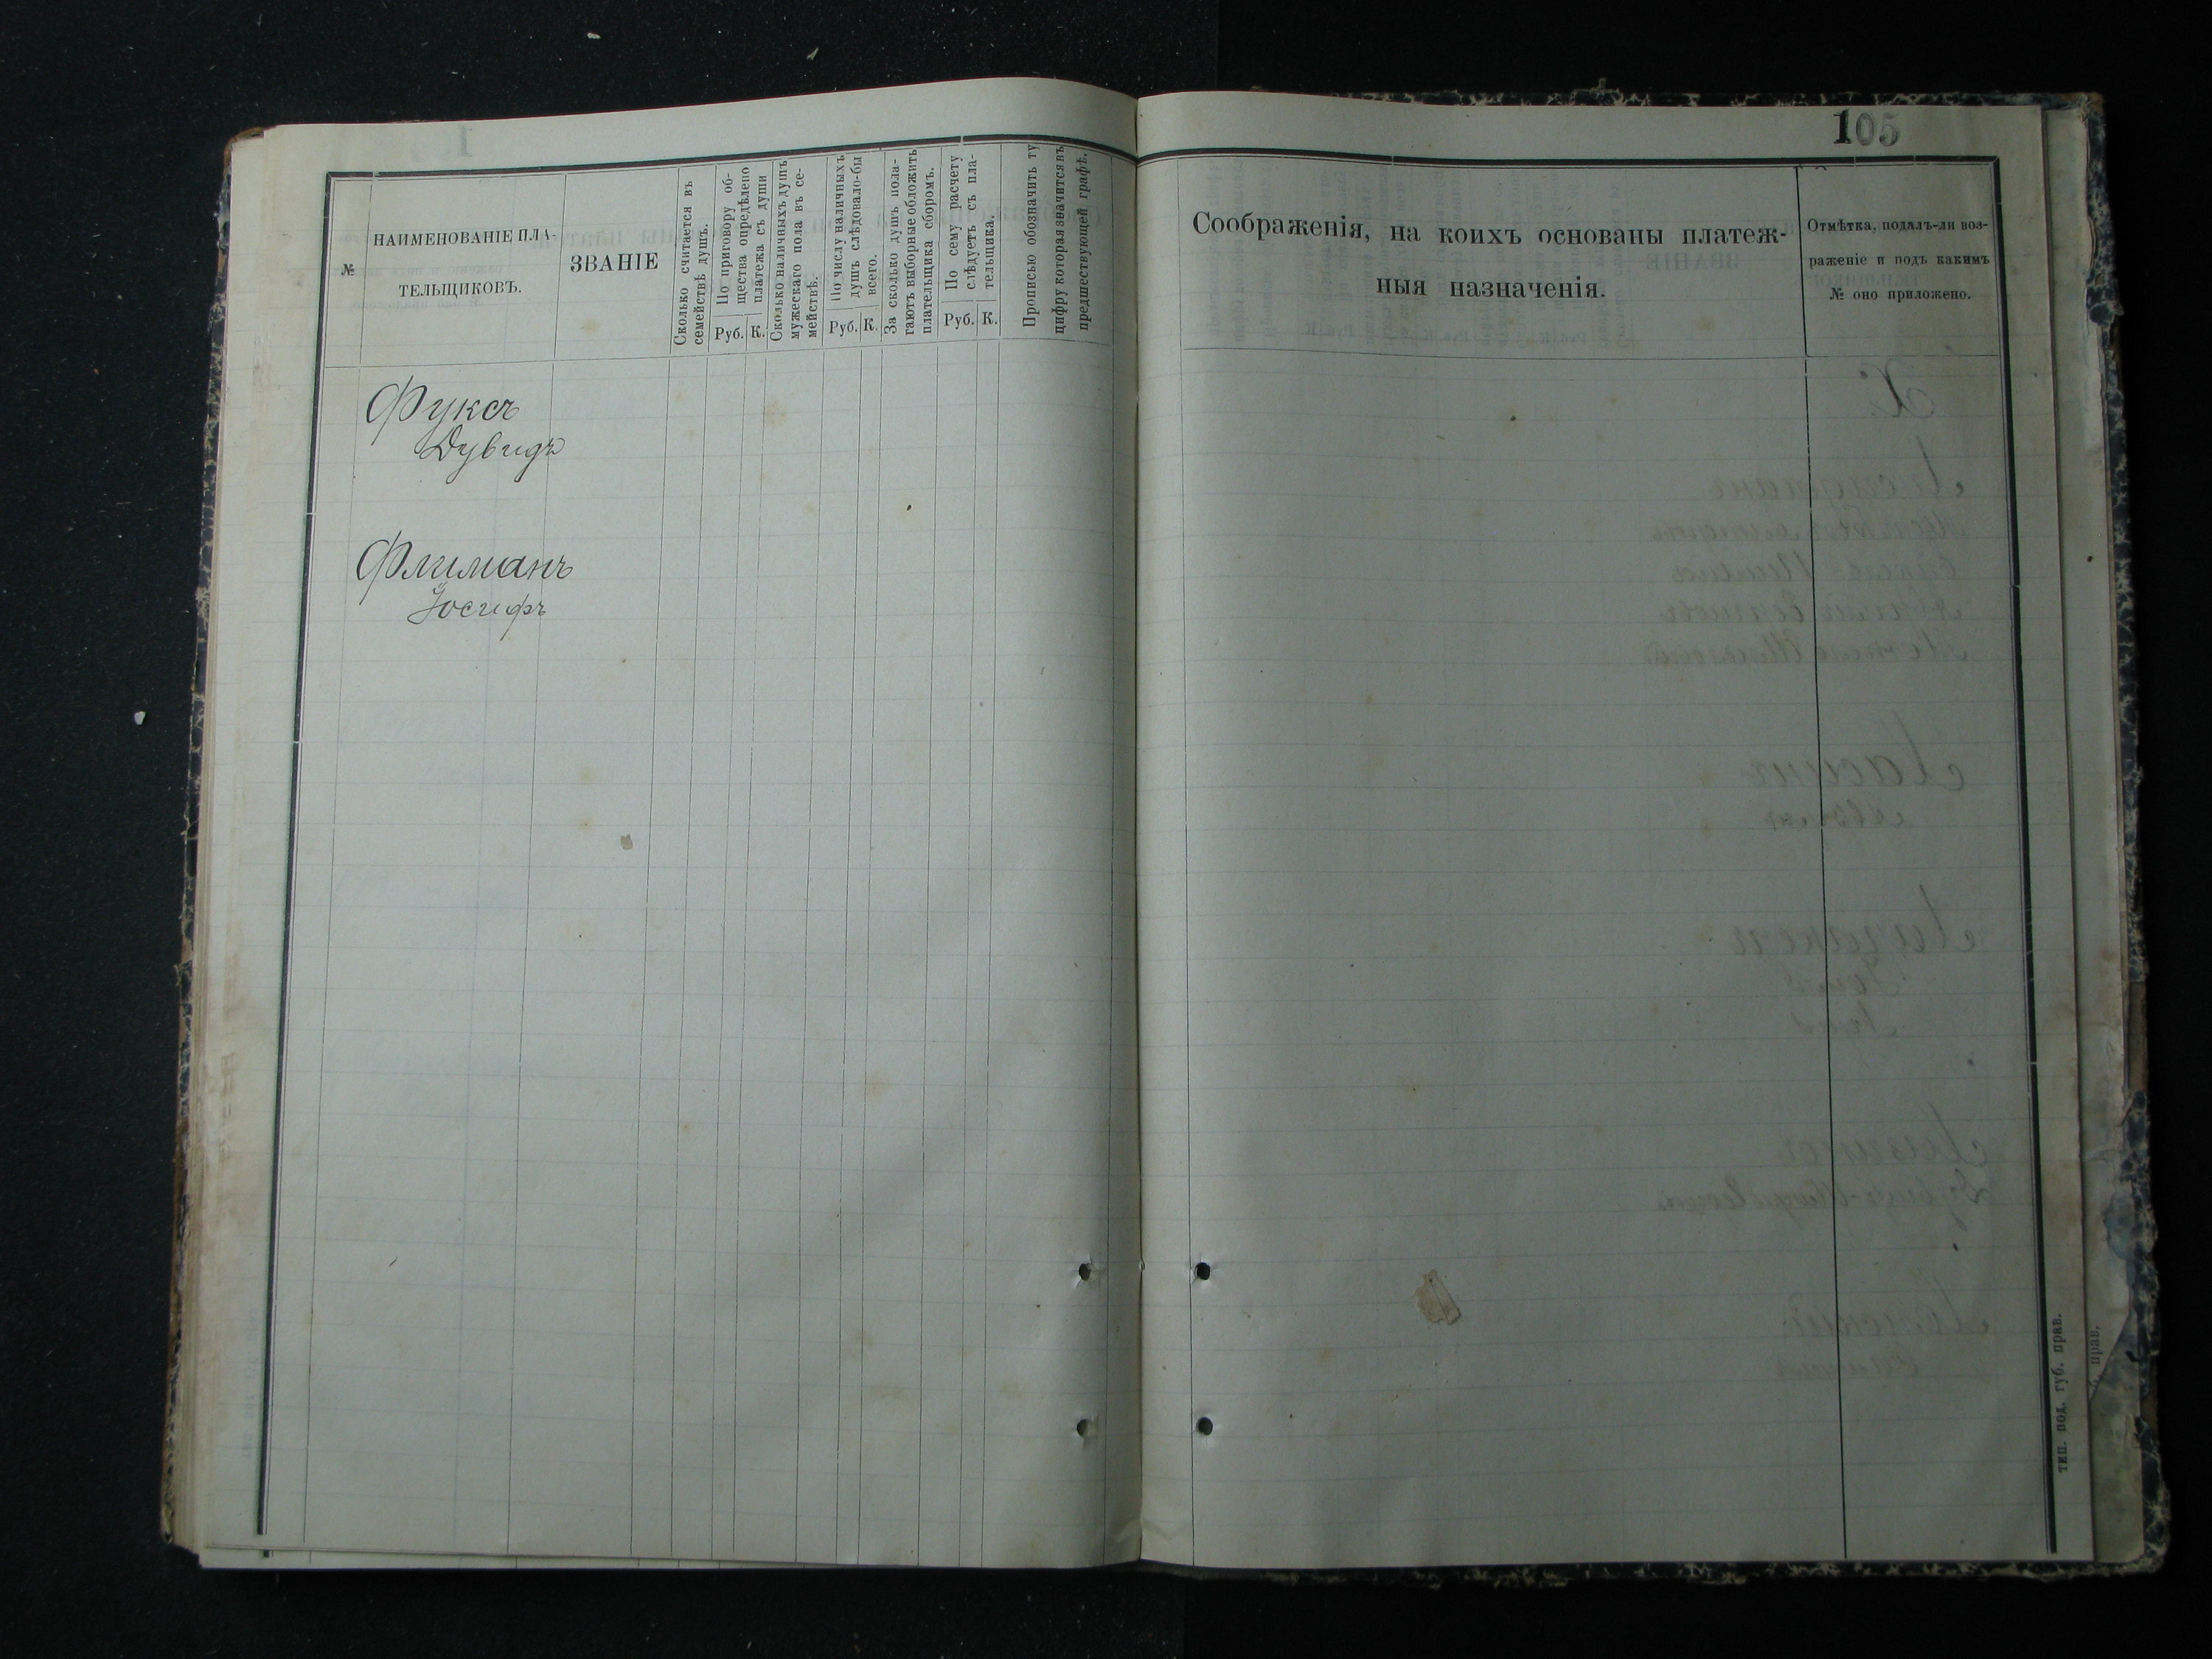 105
№
НАИМЕНОВАНІЕ ПЛА-
ТЕЛЬЩИКОВЪ.
ЗВАНІЕ
Сколько считается въ
семействѣ душъ.
По приговору об-
щества опредѣлено
платежа съ души
Руб. К.
Сколько наличныхъ душъ
мужескаго пола въ се-
мействѣ.
По числу наличныхъ
душъ слѣдовало-бы
всего.
Руб. К.
За сколько душъ пола-
гаютъ выборные обложить
плательщика сборомъ.
По сему расчету
слѣдуетъ съ пла-
тельщика.
Руб. К.
Прописью обозначить ту
цифру которая значится въ
предшествующей графѣ.
Соображенія, на коихъ основаны платеж-
ныя назначенія.
Отмѣтка, подалъ-ли воз-
раженіе и подъ какимъ
№ оно приложено.
Фуксъ
Дувидъ
Флиманъ
Іосифъ
тип. под. губ. прав.
прав.